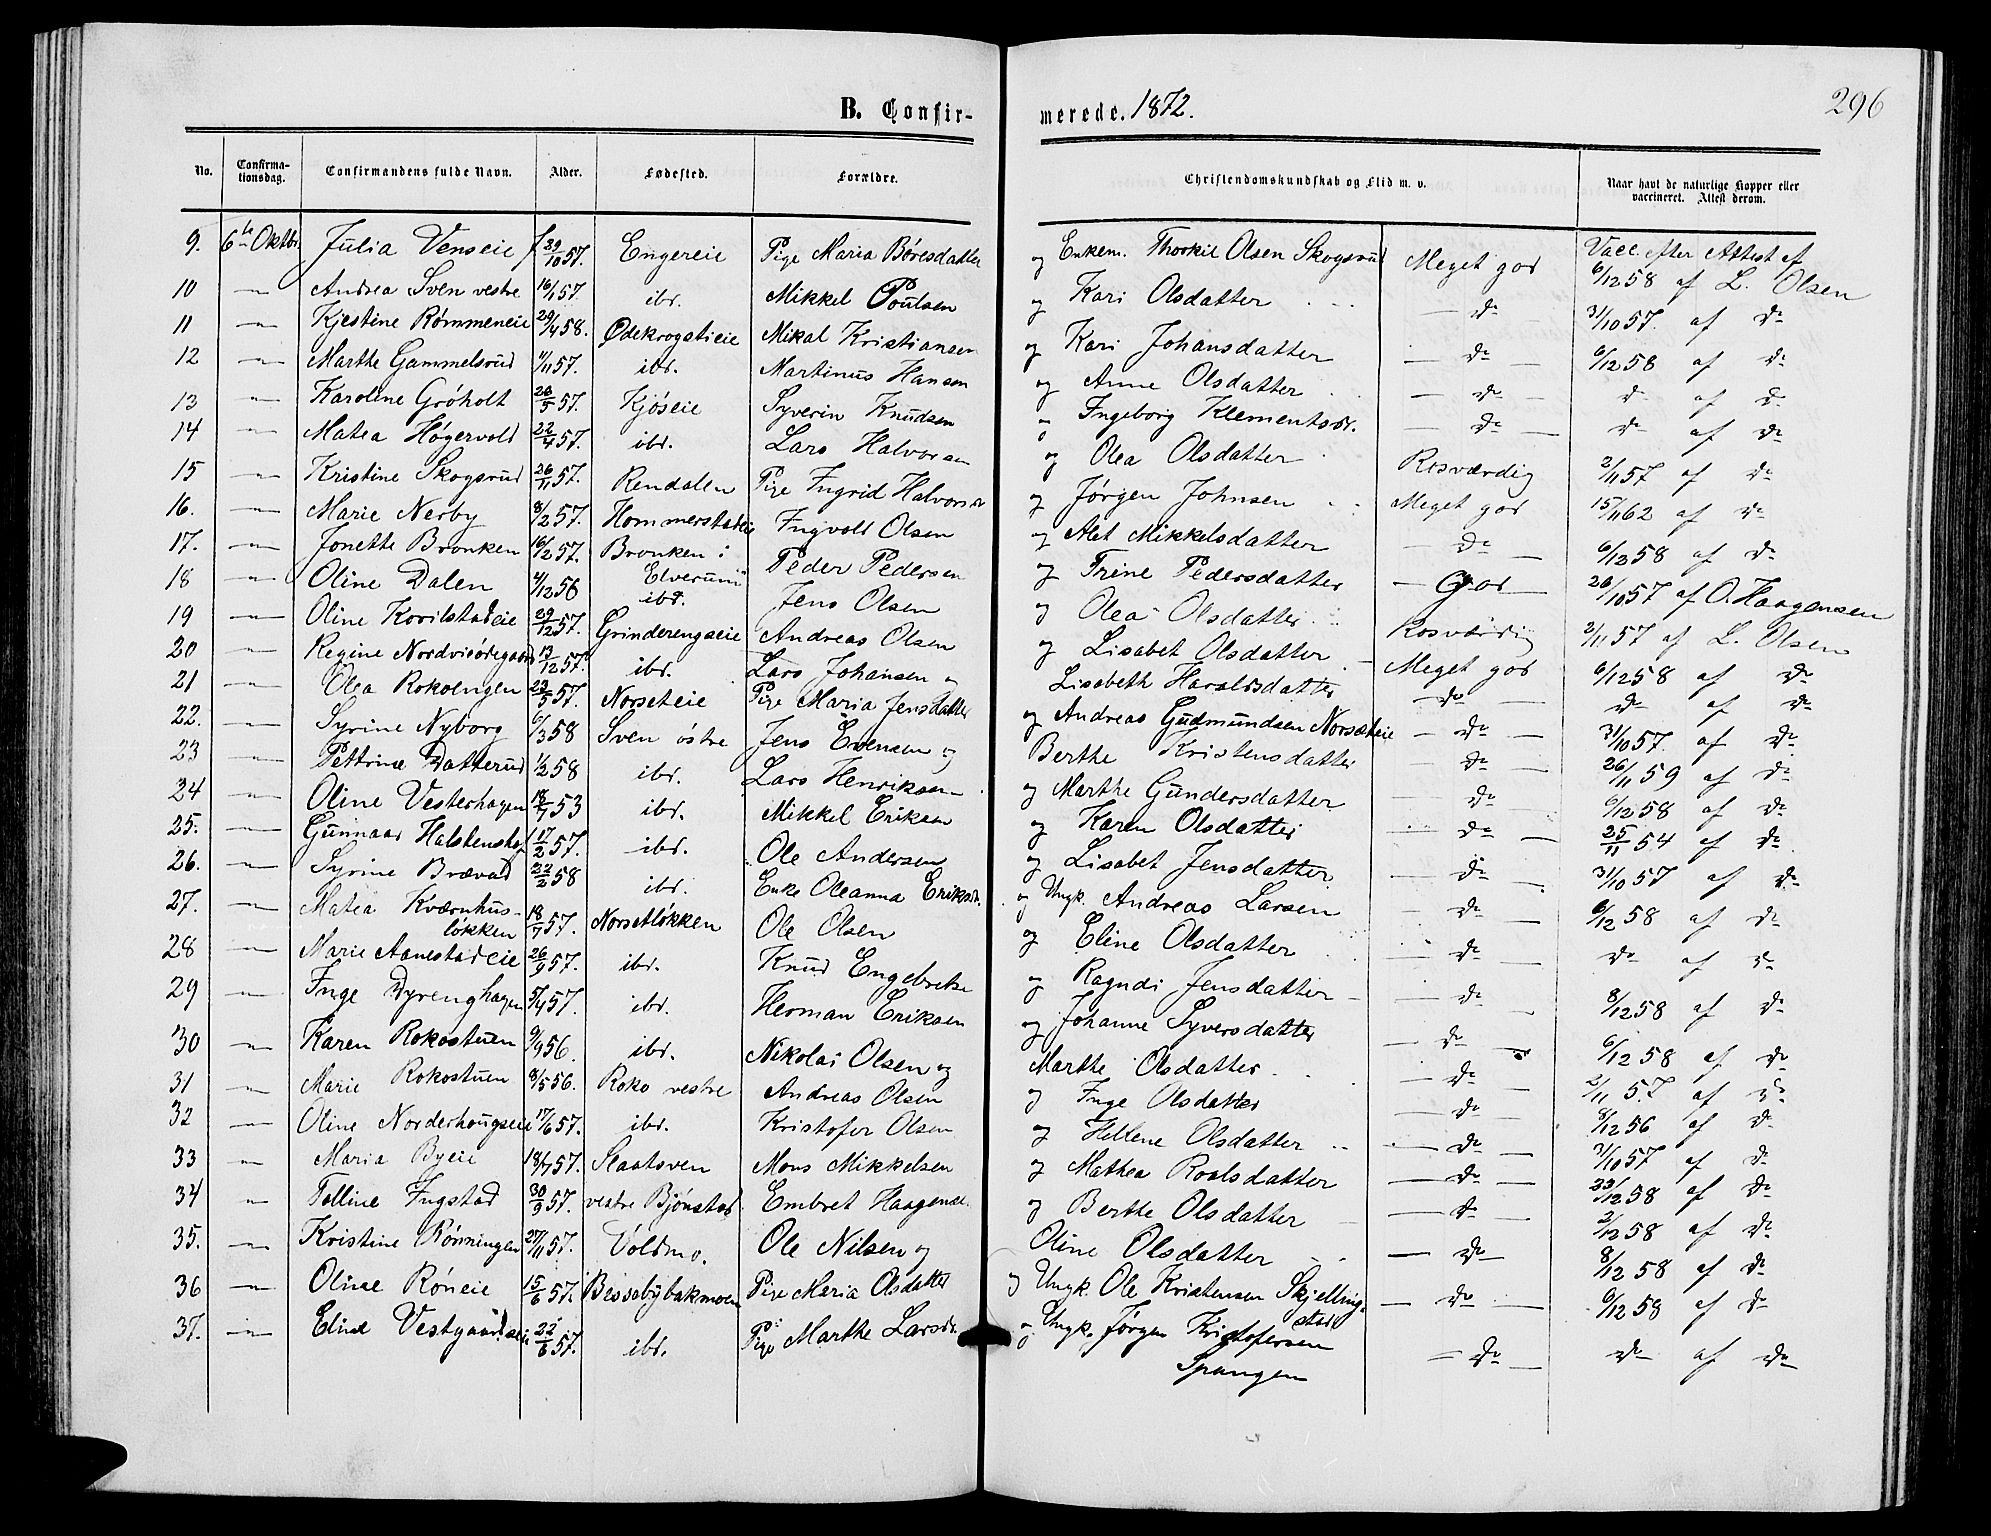 296
B. Confirmerede. 1872.
No. Confirmationsdag. Confirmandens fulde Navn. Alder. Fødested. Forældre. Christendomskundskab og Flid m. v. Naar havt de naturlige Kopper eller vaccineret. Attest derom.
9. 6te Oktbr. Julia Venseie f 29/10 57. Engereie Pige Maria Børesdatter og Enkem. Thorkil Olsen Skogsrud Meget god Vacc. efter Attest af 6/12 58 af L. Olsen
10 — Andrea Sven vestre 16/1 57. ibd. Mikkel Poulsen og Kari Olsdatter — do — 31/10 57. af do
11 — Kjestine Rømmeneie 29/4 58. Ødekrogstieie Mikal Kristiansen og Kari Johansdatter — do — 6/12 58 af do
12 — Marthe Gammelsrud 1/11 57. ibd. Martinus Hansen og Anne Olsdatter — do — do af do
13 — Karoline Grøholt 20/5 57. Kjøseie Syverin Knudsen og Ingeborg Klementsdr. — do — do af do
14 — Matea Høgervold 22/4 57. ibd. Lars Halvorsen og Olea Olsdatter Rosværdig 2/11 57 af do
15 — Kristine Skogsrud 26/11 57. Rendalen Pige Ingrid Halvorsdr og Jørgen Johnsen Meget god 15/11 62 af do
16. — Marie Nerby 8/2 57. Hommerstadeie Ingvold Olsen og Alet Mikkelsdatter — do — 6/12 58 af do
17. — Jonette Bronken 16/2 57. Bronken i Elverum Peder Pedersen og Trine Pedersdatter — God — 26/10 57 af O. Haagensen
18 — Oline Dalen 4/12 56 ibd. Jens Olsen og Olea Olsdatter Rosværdig 2/11 57 af L. Olsen
19 — Oline Korilstadeie 29/12 57. Grinderengseie Andreas Olsen og Lisabet Olsdatter Meget god 6/12 58 af do
20 — Regine Nordvisdregaard 13/12 57. ibd. Lars Johansen og Lisabeth Haraldsdatter — do — do af do
21 — Olea Rokoengen 23/5 57. Norseteie Pige Maria Jensdatter og Andreas Gudmundsen Norseteie — do — 31/10 57. af do
22. — Syrine Nyborg 6/3 58 Sven østre Jens Evensen og Berthe Kristensdatter — do — 26/11 59 af do
23 — Pettrine Datterud 1/2 58 ibd. Lars Henriksen og Marthe Gundersdatter — do — 6/12 58 af do
24 — Oline Vesterhagen 18/7 53 ibd. Mikkel Eriksen og Karen Olsdatter — do — 25/11 54 af do
25. — Gunnaar Halstenshof 17/2 57. ibd. Ole Andersen og Lisabet Jensdatter — do — 31/10 57 af do
26. — Syrine Brævad 22/2 58 ibd. Enke Oleanna Eriksdr. og Ungk. Andreas Larsen — do — 6/12 58 af do
27. — Matea Kværnhusløkken 18/7 57. Norsetløkken Ole Olsen og Eline Olsdatter — do — do af do
28 — Marie Aanestadeie 26/9 57. ibd. Knud Engebretse og Ragndi Jensdatter — do — 8/12 58 af do
29 — Inge Dyrenghagen 5/4 57. ibd. Herman Eriksen og Johanne Syversdatter — do — 6/12 58 af do
30 — Karen Rokostuen 9/9 56. ibd. Nikolai Olsen og Marthe Olsdatter — do — 2/11 57. af do
31 — Marie Rokostuen 8/5 56. Roko vestre Andreas Olsen og Inge Olsdatter — do — 8/12 56 af do
32 — Oline Norderhougseie 17/6 57. ibd. Kristofer Olsen og Hellene Olsdatter — do — 31/10 57 af do
33 — Maria Byeie 18/7 57. Slaatsven Mons Mikkelsen og Mathea Roalsdatter — do — 22/12 58 af do
34 — Tolline Ingstad 30/9 57. vestre Bjønstad Embret Haagensen og Berthe Olsdatter — do — 2/12 58 af do
35. — Kristine Rønningen 27/11 57. Voldmo. Ole Nilsen og Oline Olsdatter — do — 8/12 58 af do
36 — Oline Røneie 15/6 57. Bessebybakmoen Pige Maria Olsdatter og Ungk. Ole Kristensen Skjellingstad — do — 6/12 58 af do
37. — Eline Vestgaardseie 22/6 57. ibd. Pige Marthe Larsdr. og Ungk. Jørgen Kristofersen Spangen — do — do af do